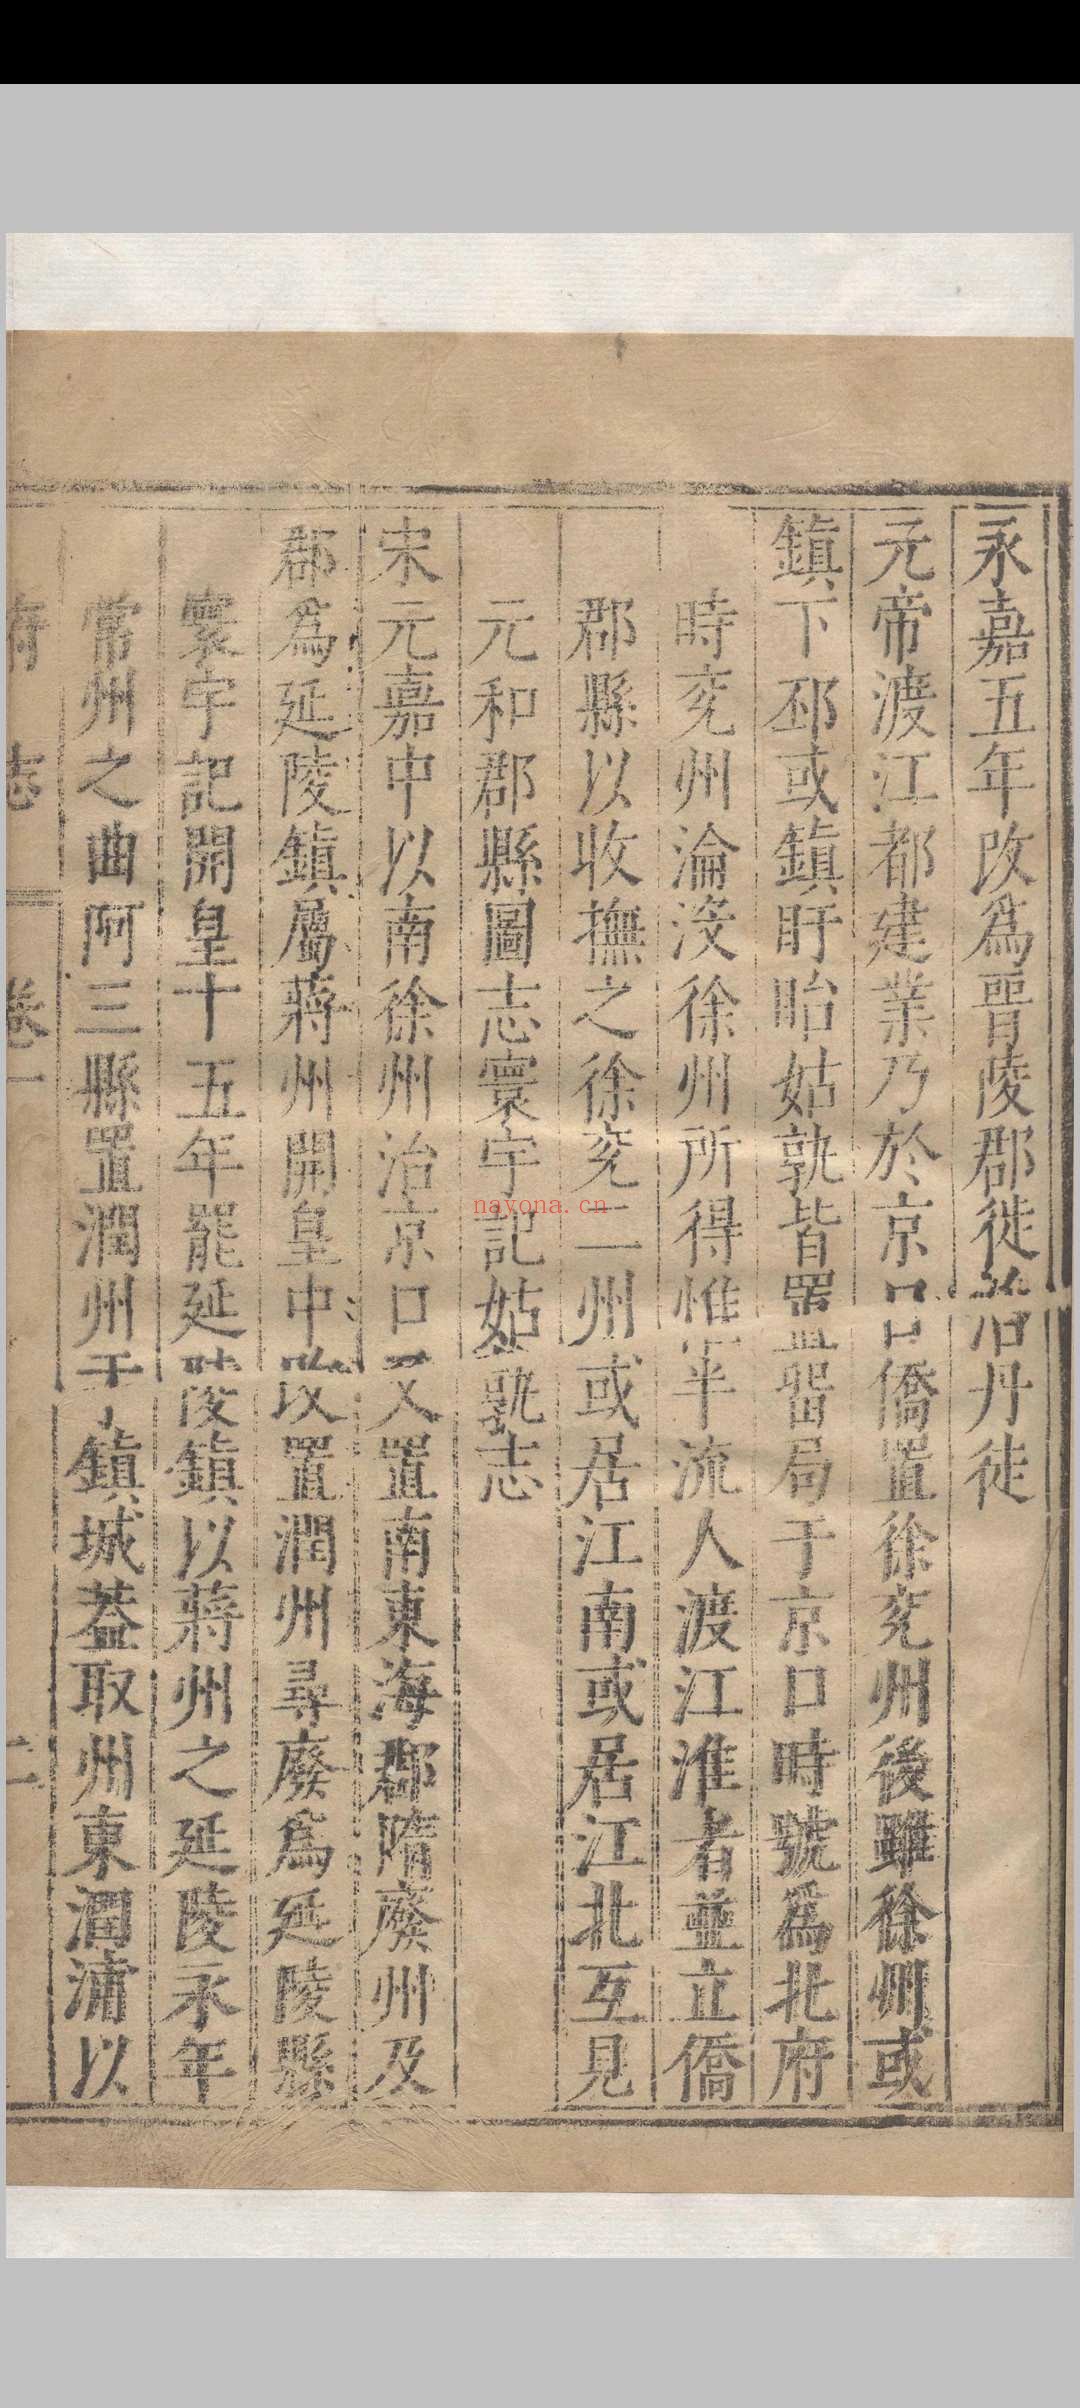 永嘉五年改爲晉陵郡徙治丹徒
元帝渡江都建業乃於京口僑置徐兖州後雖徐州或
鎮下邳或鎮盱眙姑孰皆置留局于京口時號爲北府
時兖州淪没徐州所得惟半流人渡江淮者並立僑
郡縣以收撫之徐兖二州或居江南或居江北互見
元和郡縣圖志寰宇記姑孰志
宋元嘉中以南徐州治京口又置南東海郡隋廢州及
郡爲延陵鎮屬蔣州開皇中改置潤州尋廢爲延陵縣
寰宇記開皇十五年罷延陵鎮以蔣州之延陵永年
常州之曲阿三縣置潤州于鎮城葢取州東潤浦以
府志 卷一 二
nayona.cn